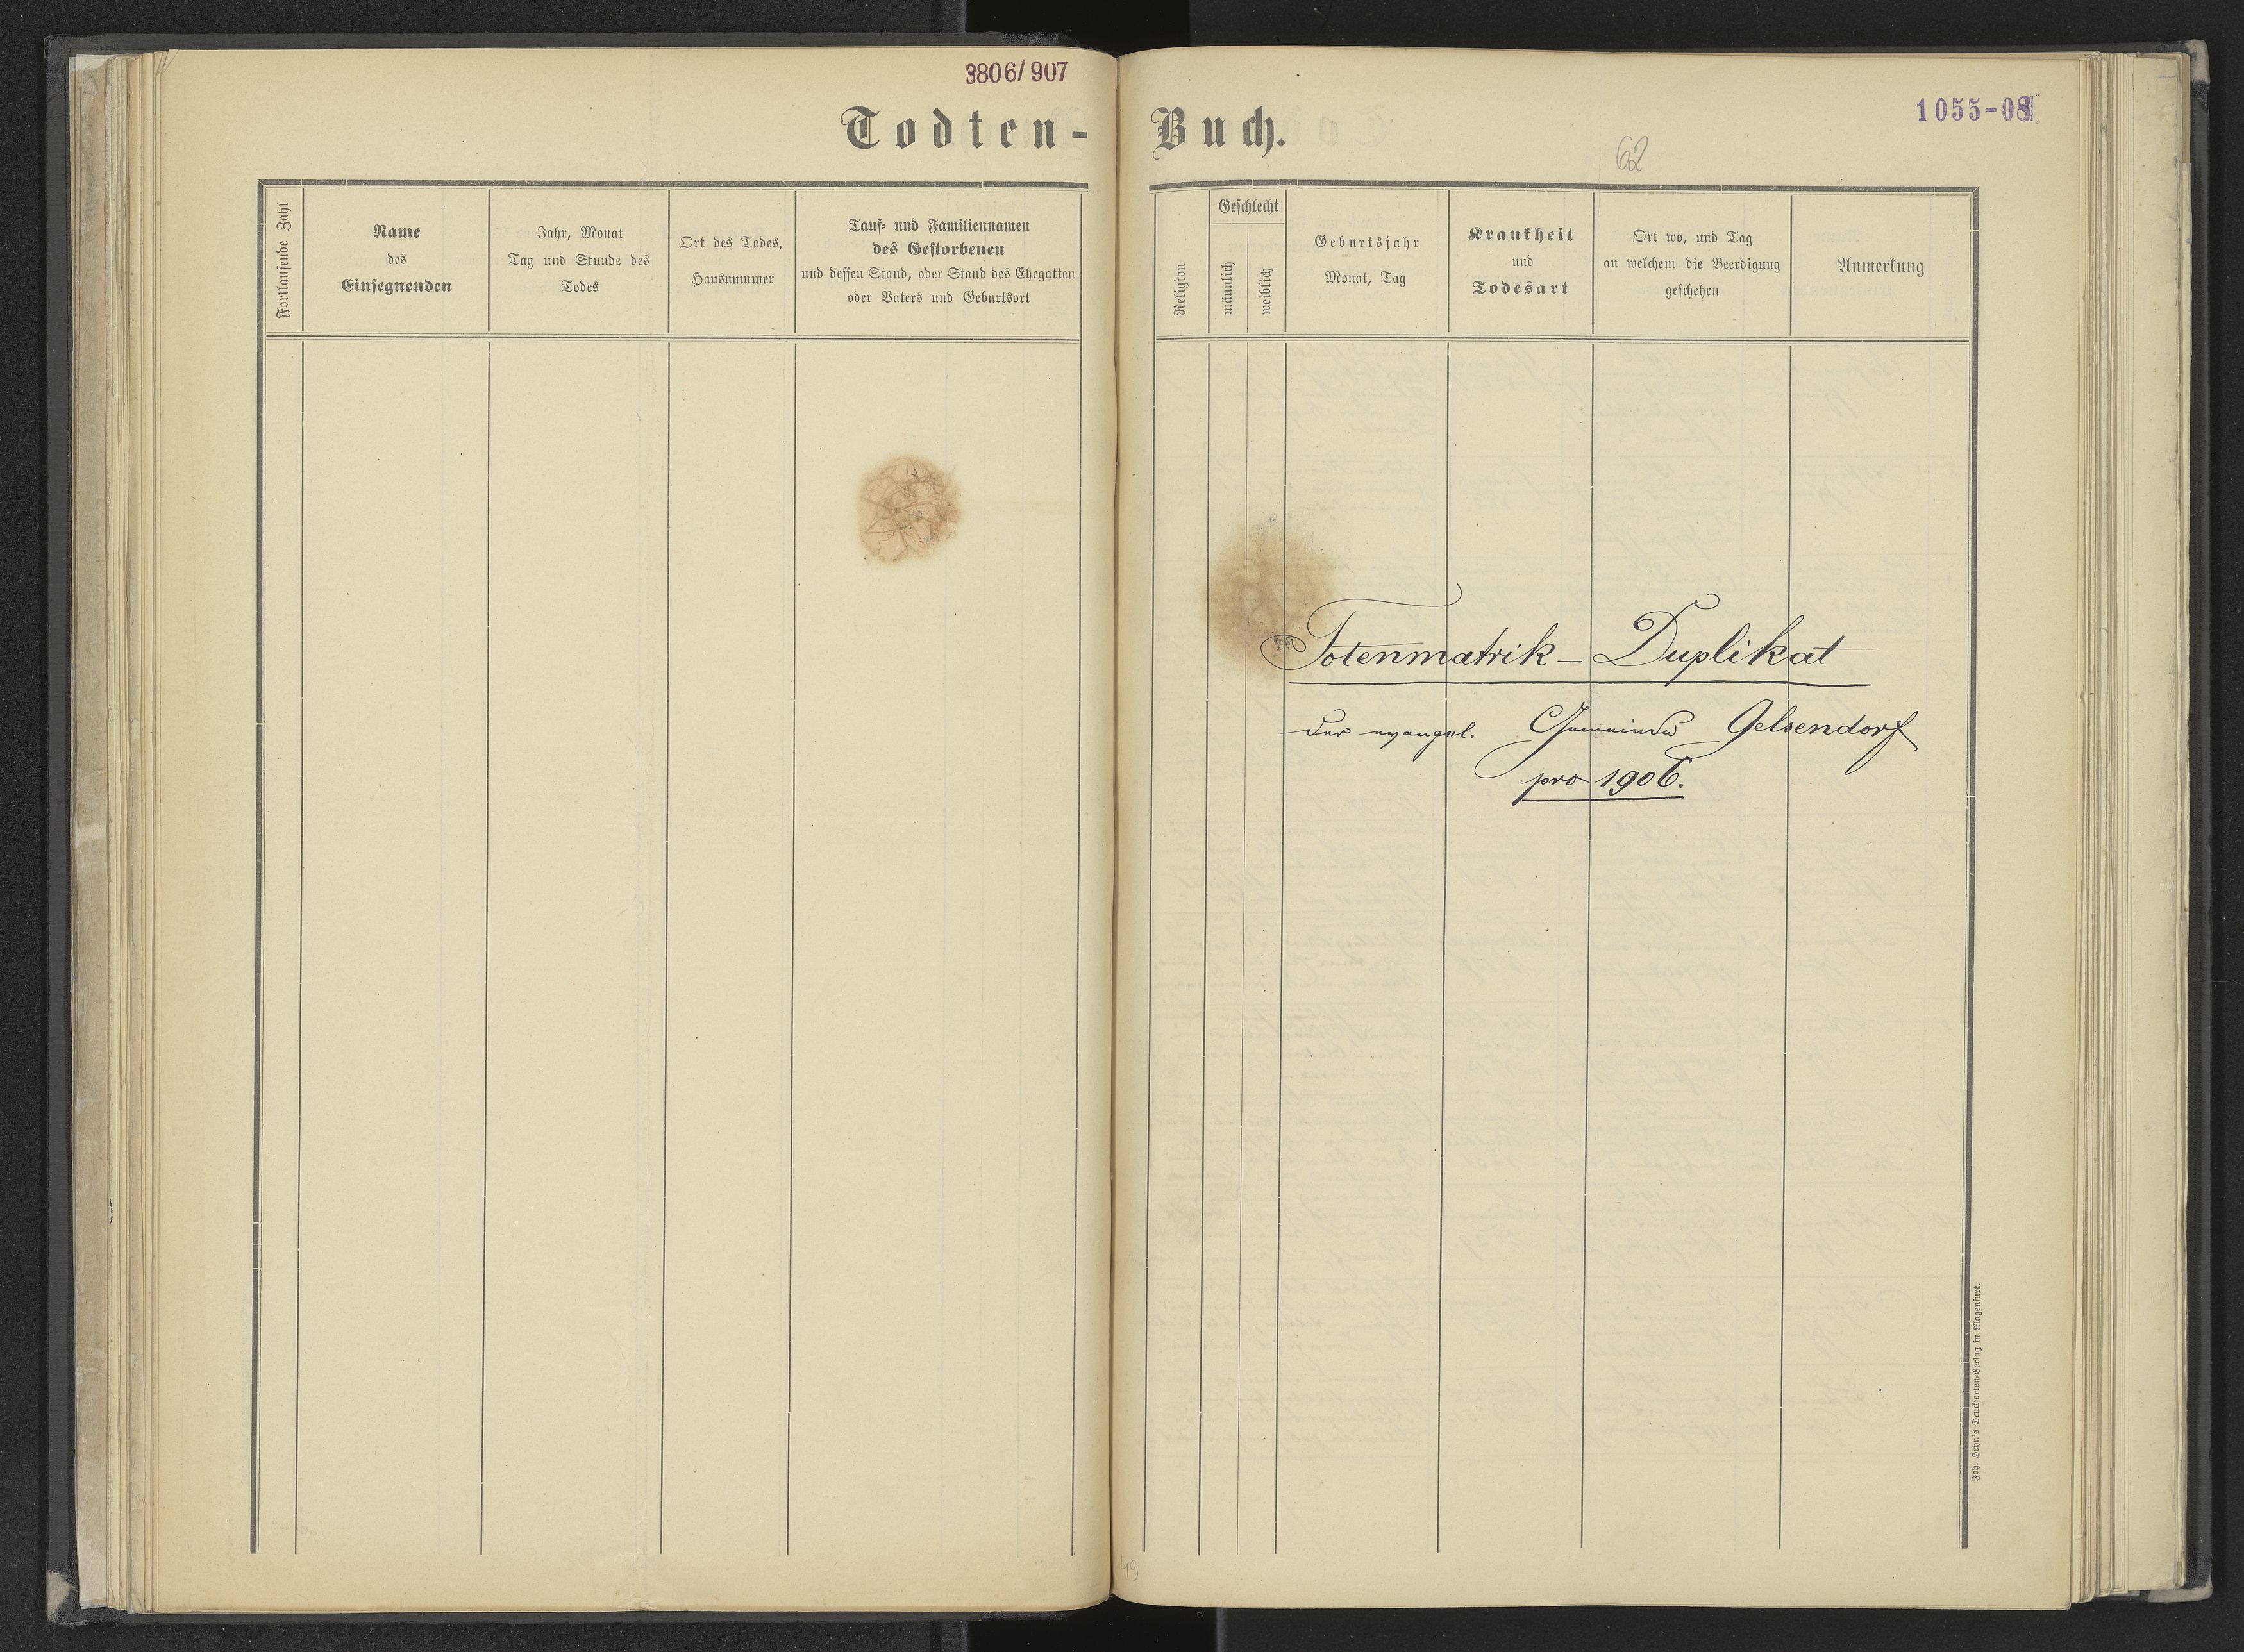 3806/907
Todten-
Fortlaufende Zahl
Name
des
Einsegnenden
Jahr, Monat
Tag und Stunde des
Todes
Ort des Todes,
Hausnummer
Tauf- und Familiennamen
des Gestorbenen
und dessen Stand, oder Stand des Ehegatten
oder Vaters und Geburtsort
1055-08
Buch.
62
Religion
Geschlecht
männlich
weiblich
Geburtsjahr
Monat, Tag
Krankheit
und
Todesart
Ort wo, und Tag
an welchem die Beerdigung
geschehen
Anmerkung
Totenmatrik - Duplikat
der evangel. Gemeinde Gelsendorf
pro 1906.
Joh. Heyn's Drucksorten-Verlag in Klagenfurt.
49